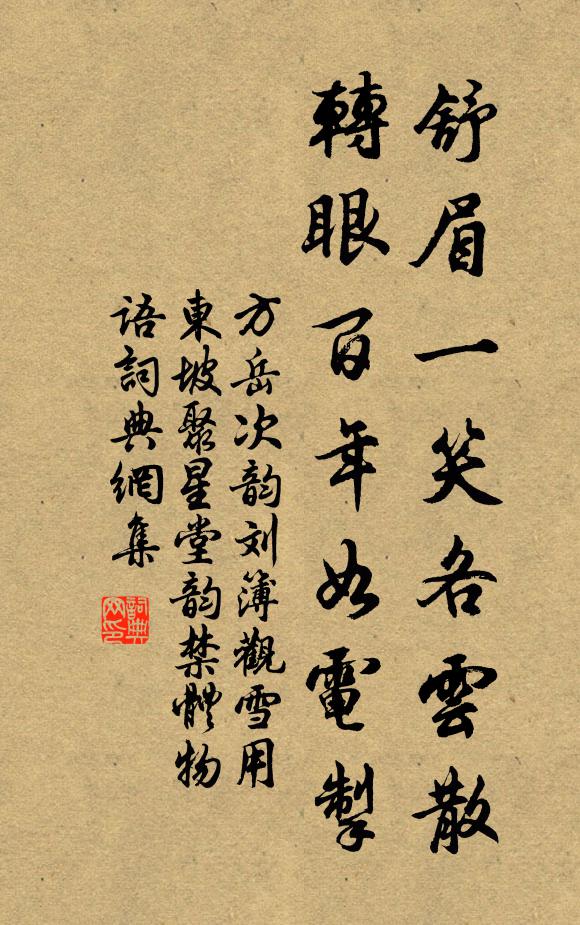 舒眉一笑各雲散
轉眼百年如電掣
方岳次韵刘簿觀雪用
東坡聚星堂韵禁體物
语詞典網集
詞典网印